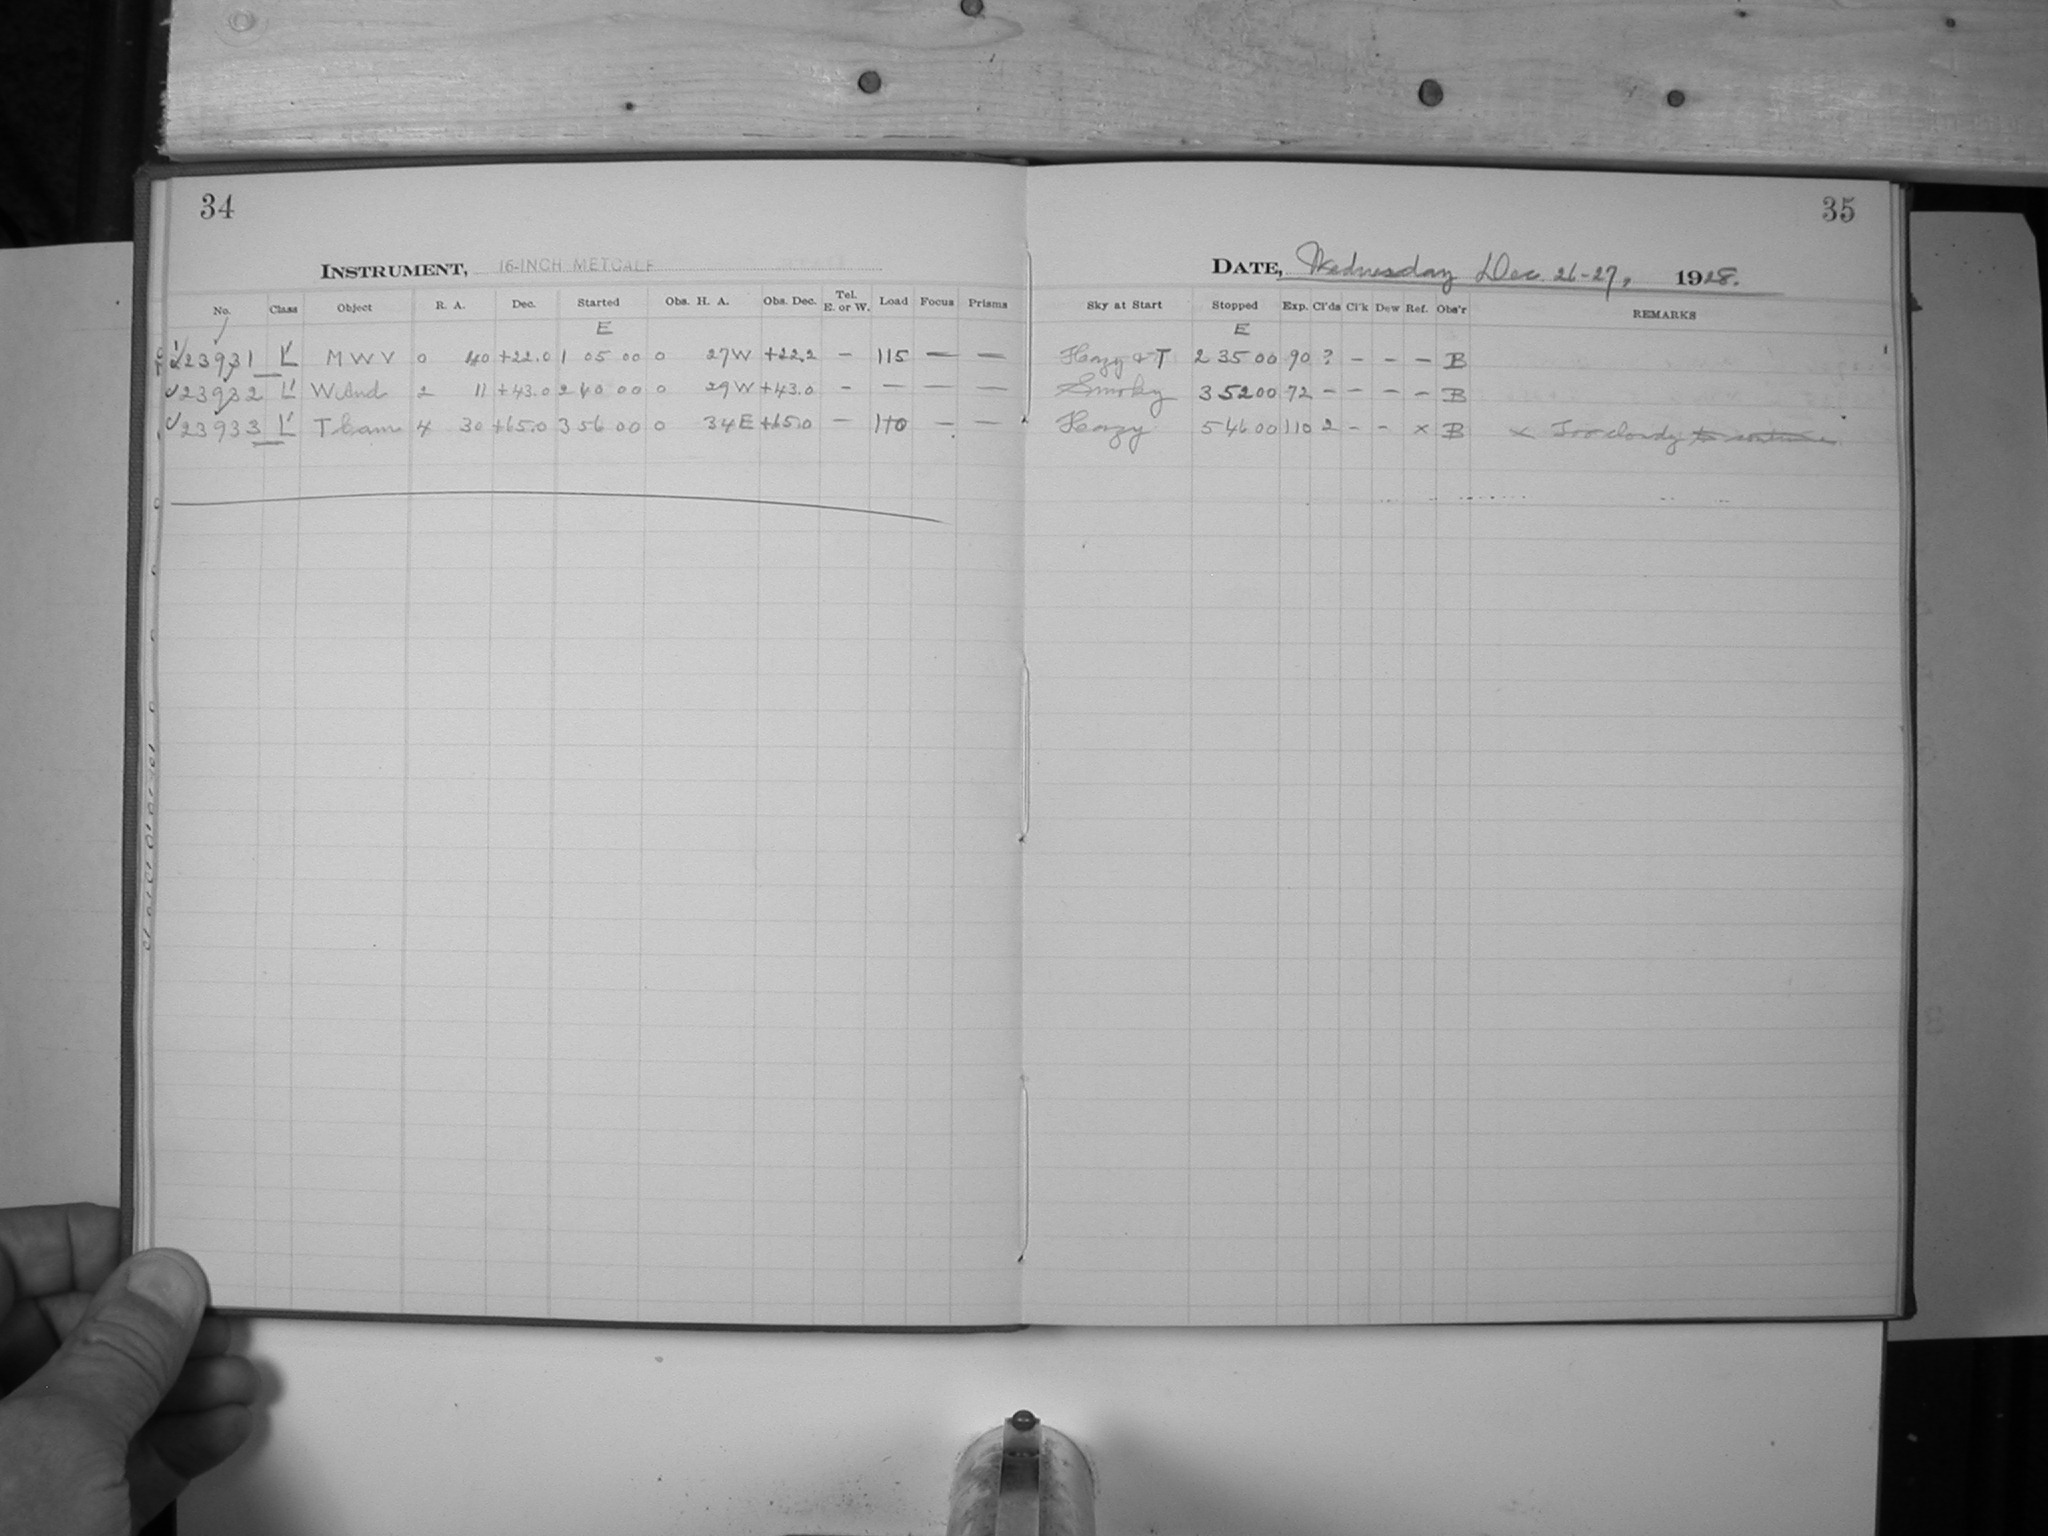 34
35
INSTRUMENT, 16-INCH METCALF
DATE, Wednesday Dec. 26-27, 1928.
No. Class Object R. A. Dec. Started Obs. H. A. Obs. Dec. Tel. E. or W. Load Focus Prisms Sky at Start Stopped Exp. Cl'ds Cl'k Dew Ref. Obs'r REMARKS
E E
23931 L' M W V 0 40 +22.0 1 05 00 0 27W +22.2 - 115 - - Hazy + T 2 35 00 90 ? - - - B
23932 L' W And 2 11 +43.0 2 40 00 0 29W +43.0 - - - - Smoky 3 52 00 72 - - - - B
23933 L' T Cam 4 30 +65.0 3 56 00 0 34E +65.0 - 110 - - Hazy 5 46 00 110 2 - - x B x Too cloudy to continue